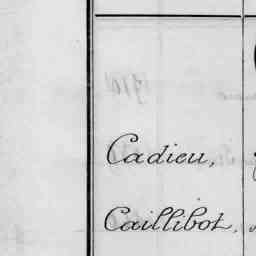 Cadieu,
Caillibot,